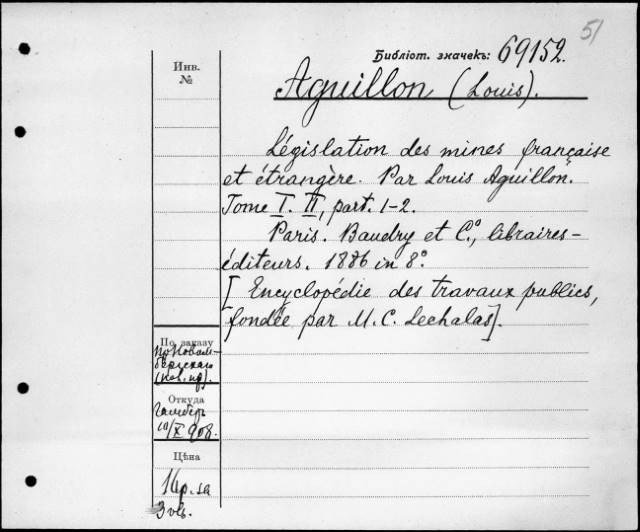 51
Библіот. значекъ: 69152.
Инв.
№
Aguillon (Louis).
Législation des mines française
et étrangère. Par Louis Aguillon.
Tome I. II, part. 1-2.
Paris. Baudry et C.º, libraires-
éditeurs. 1886 in 8º.
[Encyclopédie des travaux publics,
fondée par M. C. Lechalas].
По заказу
Откуда
10/X 908.
Цѣна
16р. за